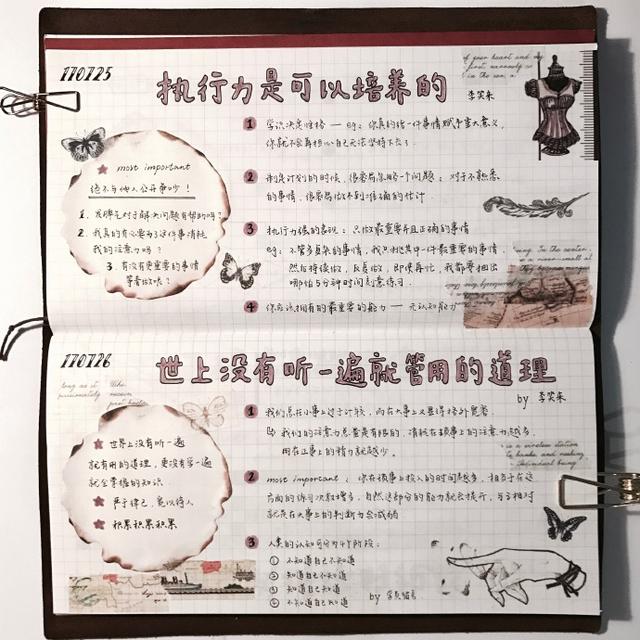 170725
执行力是可以培养的
李笑来
of your heart and my
in the sea, a
most important
绝不与他人公开争吵！
1. 发脾气对于解决问题有帮助吗？
2. 我真的有必要为了这件事情耗
我的注意力吗？
3. 有没有更重要的事情
等着做呢？
1 学识决定性格 — eg: 你真的给一件事情赋予重大意义，
你就不会再担心自己无法坚持下去了.
2 制定计划的时候，很容易忽略一个问题：对于不熟悉
的事情，很容易做不到准确的估计
3 执行力强的表现：只做最重要并且正确的事情
eg: 不管多复杂的事情，我只挑其中一件最重要的事情，
然后持续做，反复做，即使再忙，我都要抽出
哪怕5分钟时间刻意练习.
4 你应该拥有的最重要的能力 — 元认知能力
170726
世上没有听一遍就管用的道理
by 李笑来
世界上没有听一遍
就有用的道理，更没有学一遍
就全掌握的知识.
严于律己，宽以待人
积累积累积累
1 我们总在小事上过于计较，而在大事上又显得格外宽容.
我们的注意力总量是有限的，消耗在琐事上的注意力越多，
用在正事上的精力就越少。
2 most important: 你在琐事上投入的时间越多，相当于在这
方面的练习次数增多，自然这部分的能力就会提升，与之相对
就是在大事上的判断力会减弱
is a wireless station
3 人类的认知可分为4个阶段：
① 不知道自己不知道
② 知道自己不知道
③ 知道自己知道
④ 不知道自己知道
by